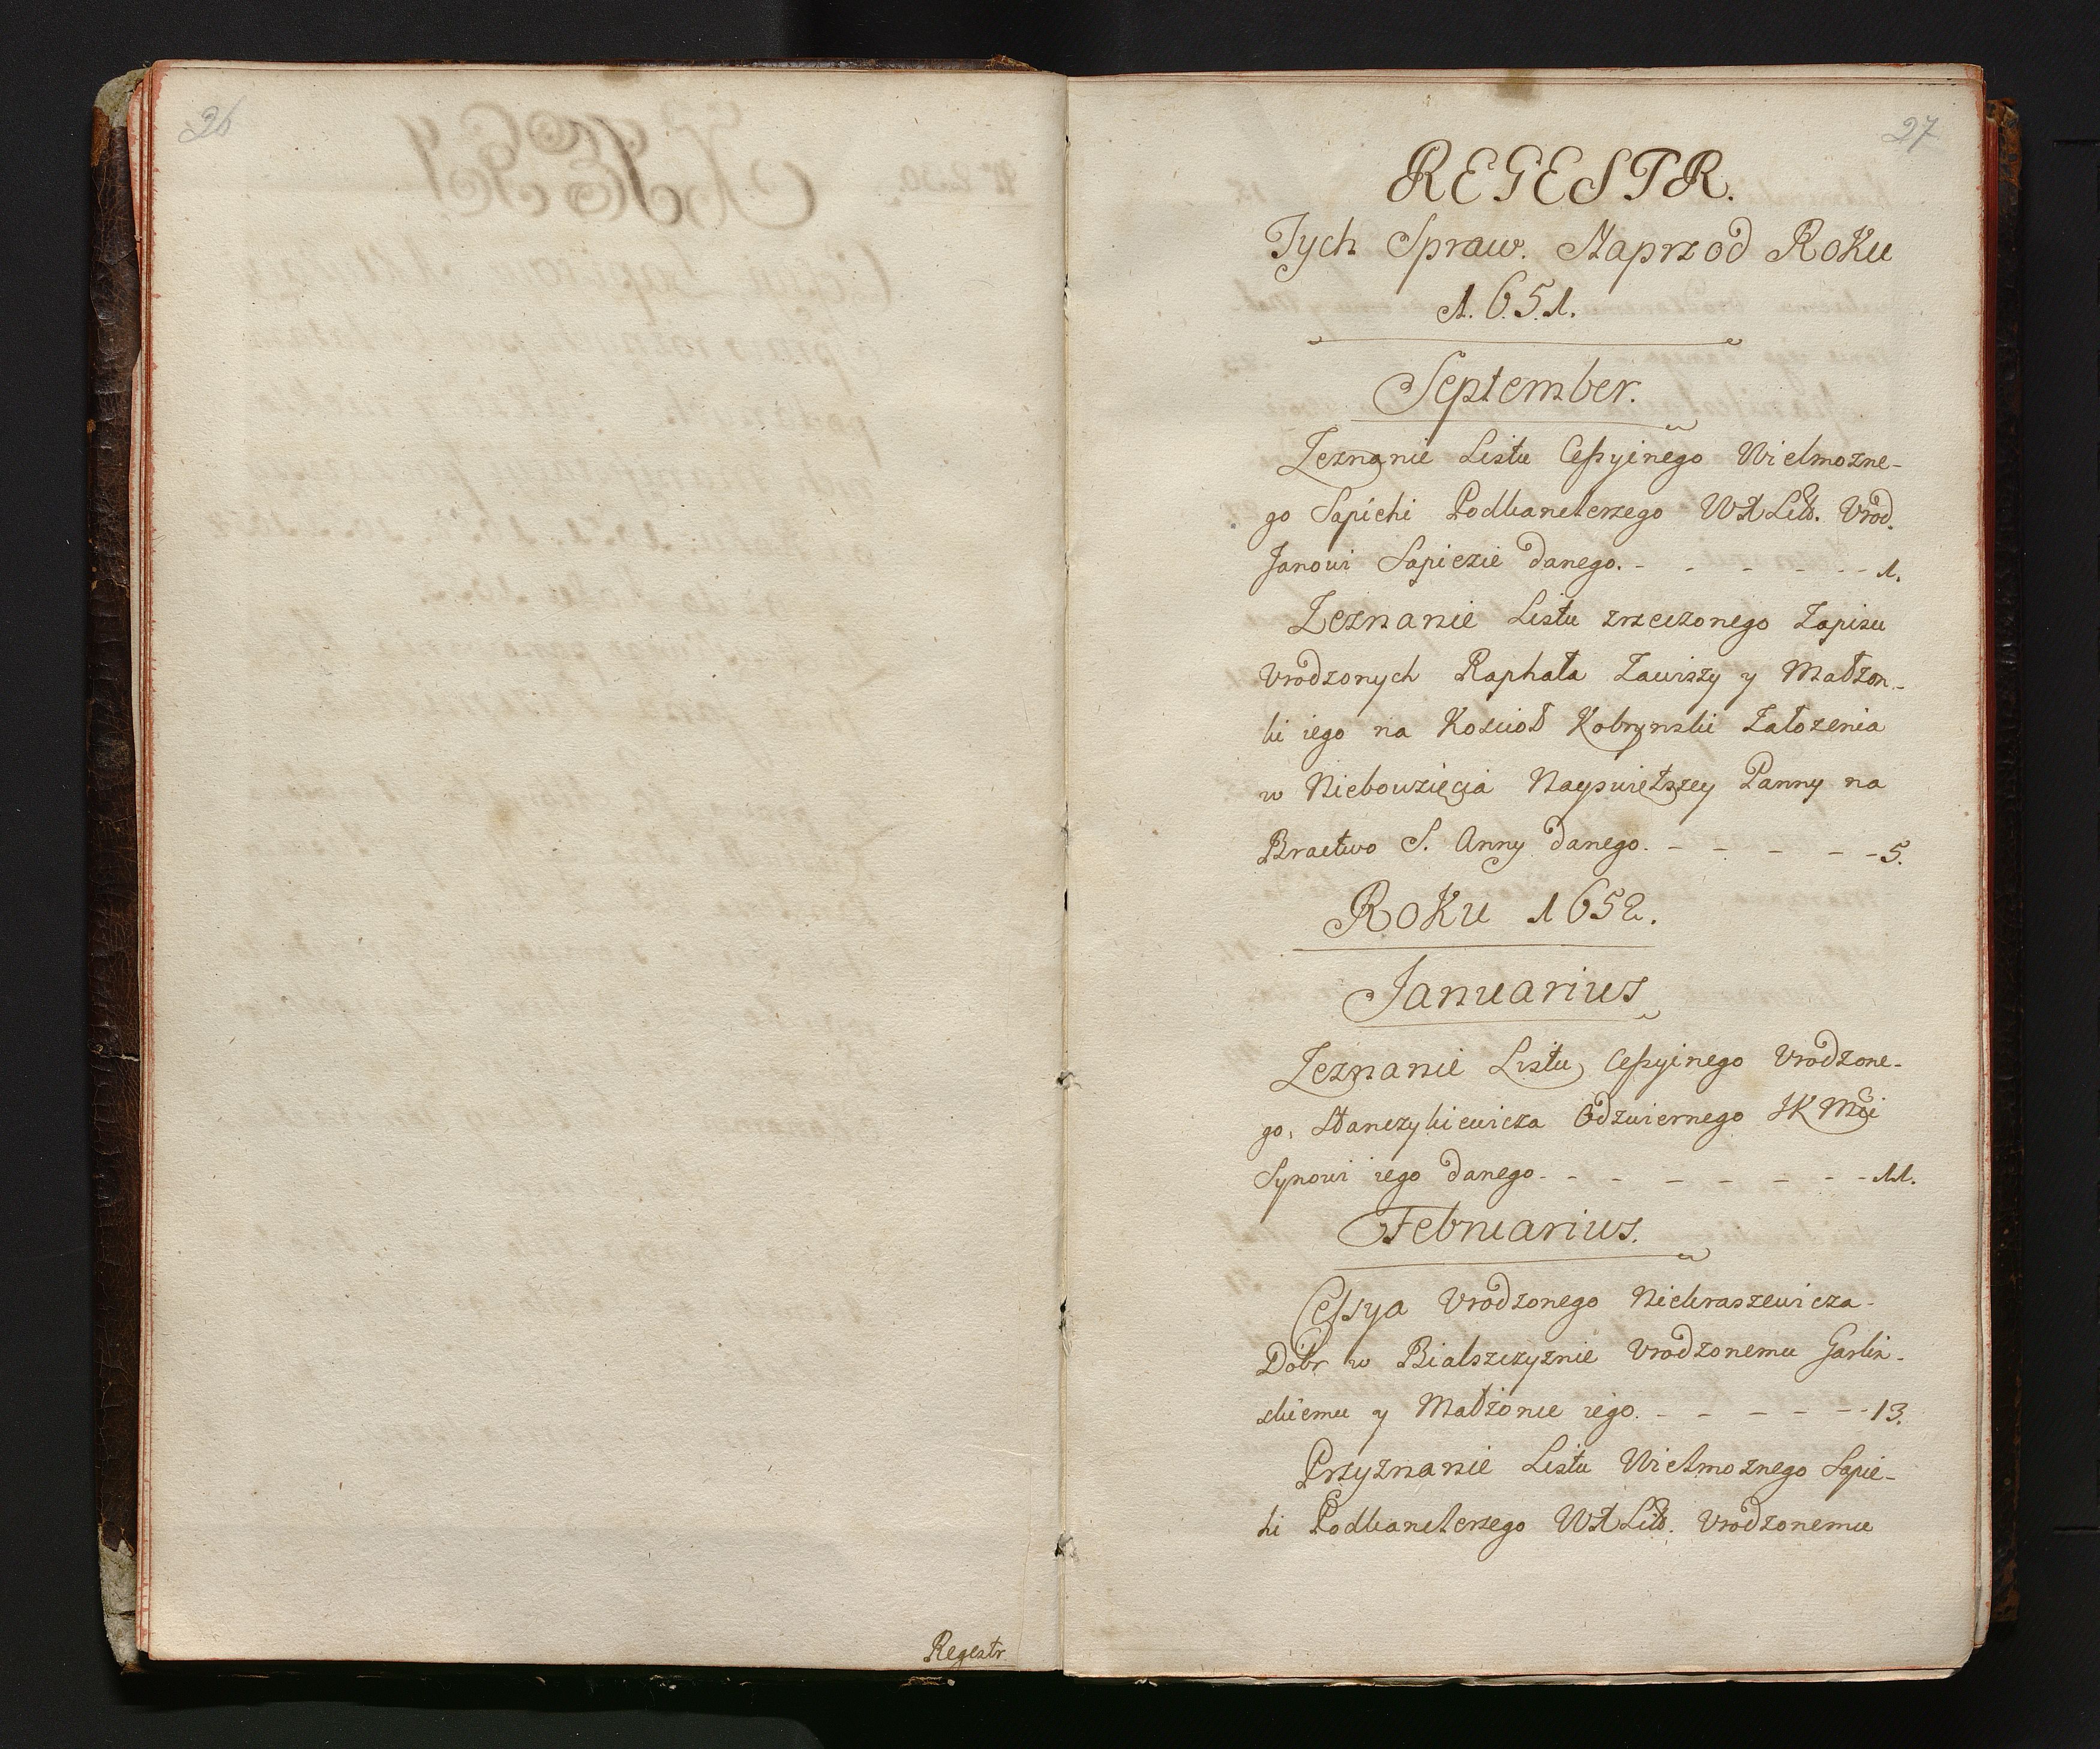 26
Regestr
27
REGESTR.
Tych Spraw. Naprzod Roku
1.6.5.1.
September.
Zeznanie Listu Cessyinego Wielmozne-
go Sapiehi Podkanclerzego WXLitt. Vrod.
Janowi Sapiezie danego. - - - - - - 1.
Zeznanie Listu zrzeczonego Zapisu
Vrodzonych Raphała Zawiszy y Małzon-
ki iego na Kościoł Kobrynski Załozenia
w Niebowzięcia Nayswiętszey Panny na
Bractwo S. Anny danego. - - - - - 5.
Roku 1652.
Januarius
Zeznanie Listu Cessyinego Vrodzone-
go, Stanczykiewicza Odzwiernego JK Mci
Synowi iego danego. - - - - - - - 11.
Februarius.
Cessya Vrodzonego Niekraszewicza
Dobr w Bialszczyznie Vrodzonemu Garlin-
skiemu y Małżonce iego. - - - - - 13.
Przyznanie Listu Wielmoznego Sapie-
hi Podkanclerzego WXLitt. Vrodzonemu